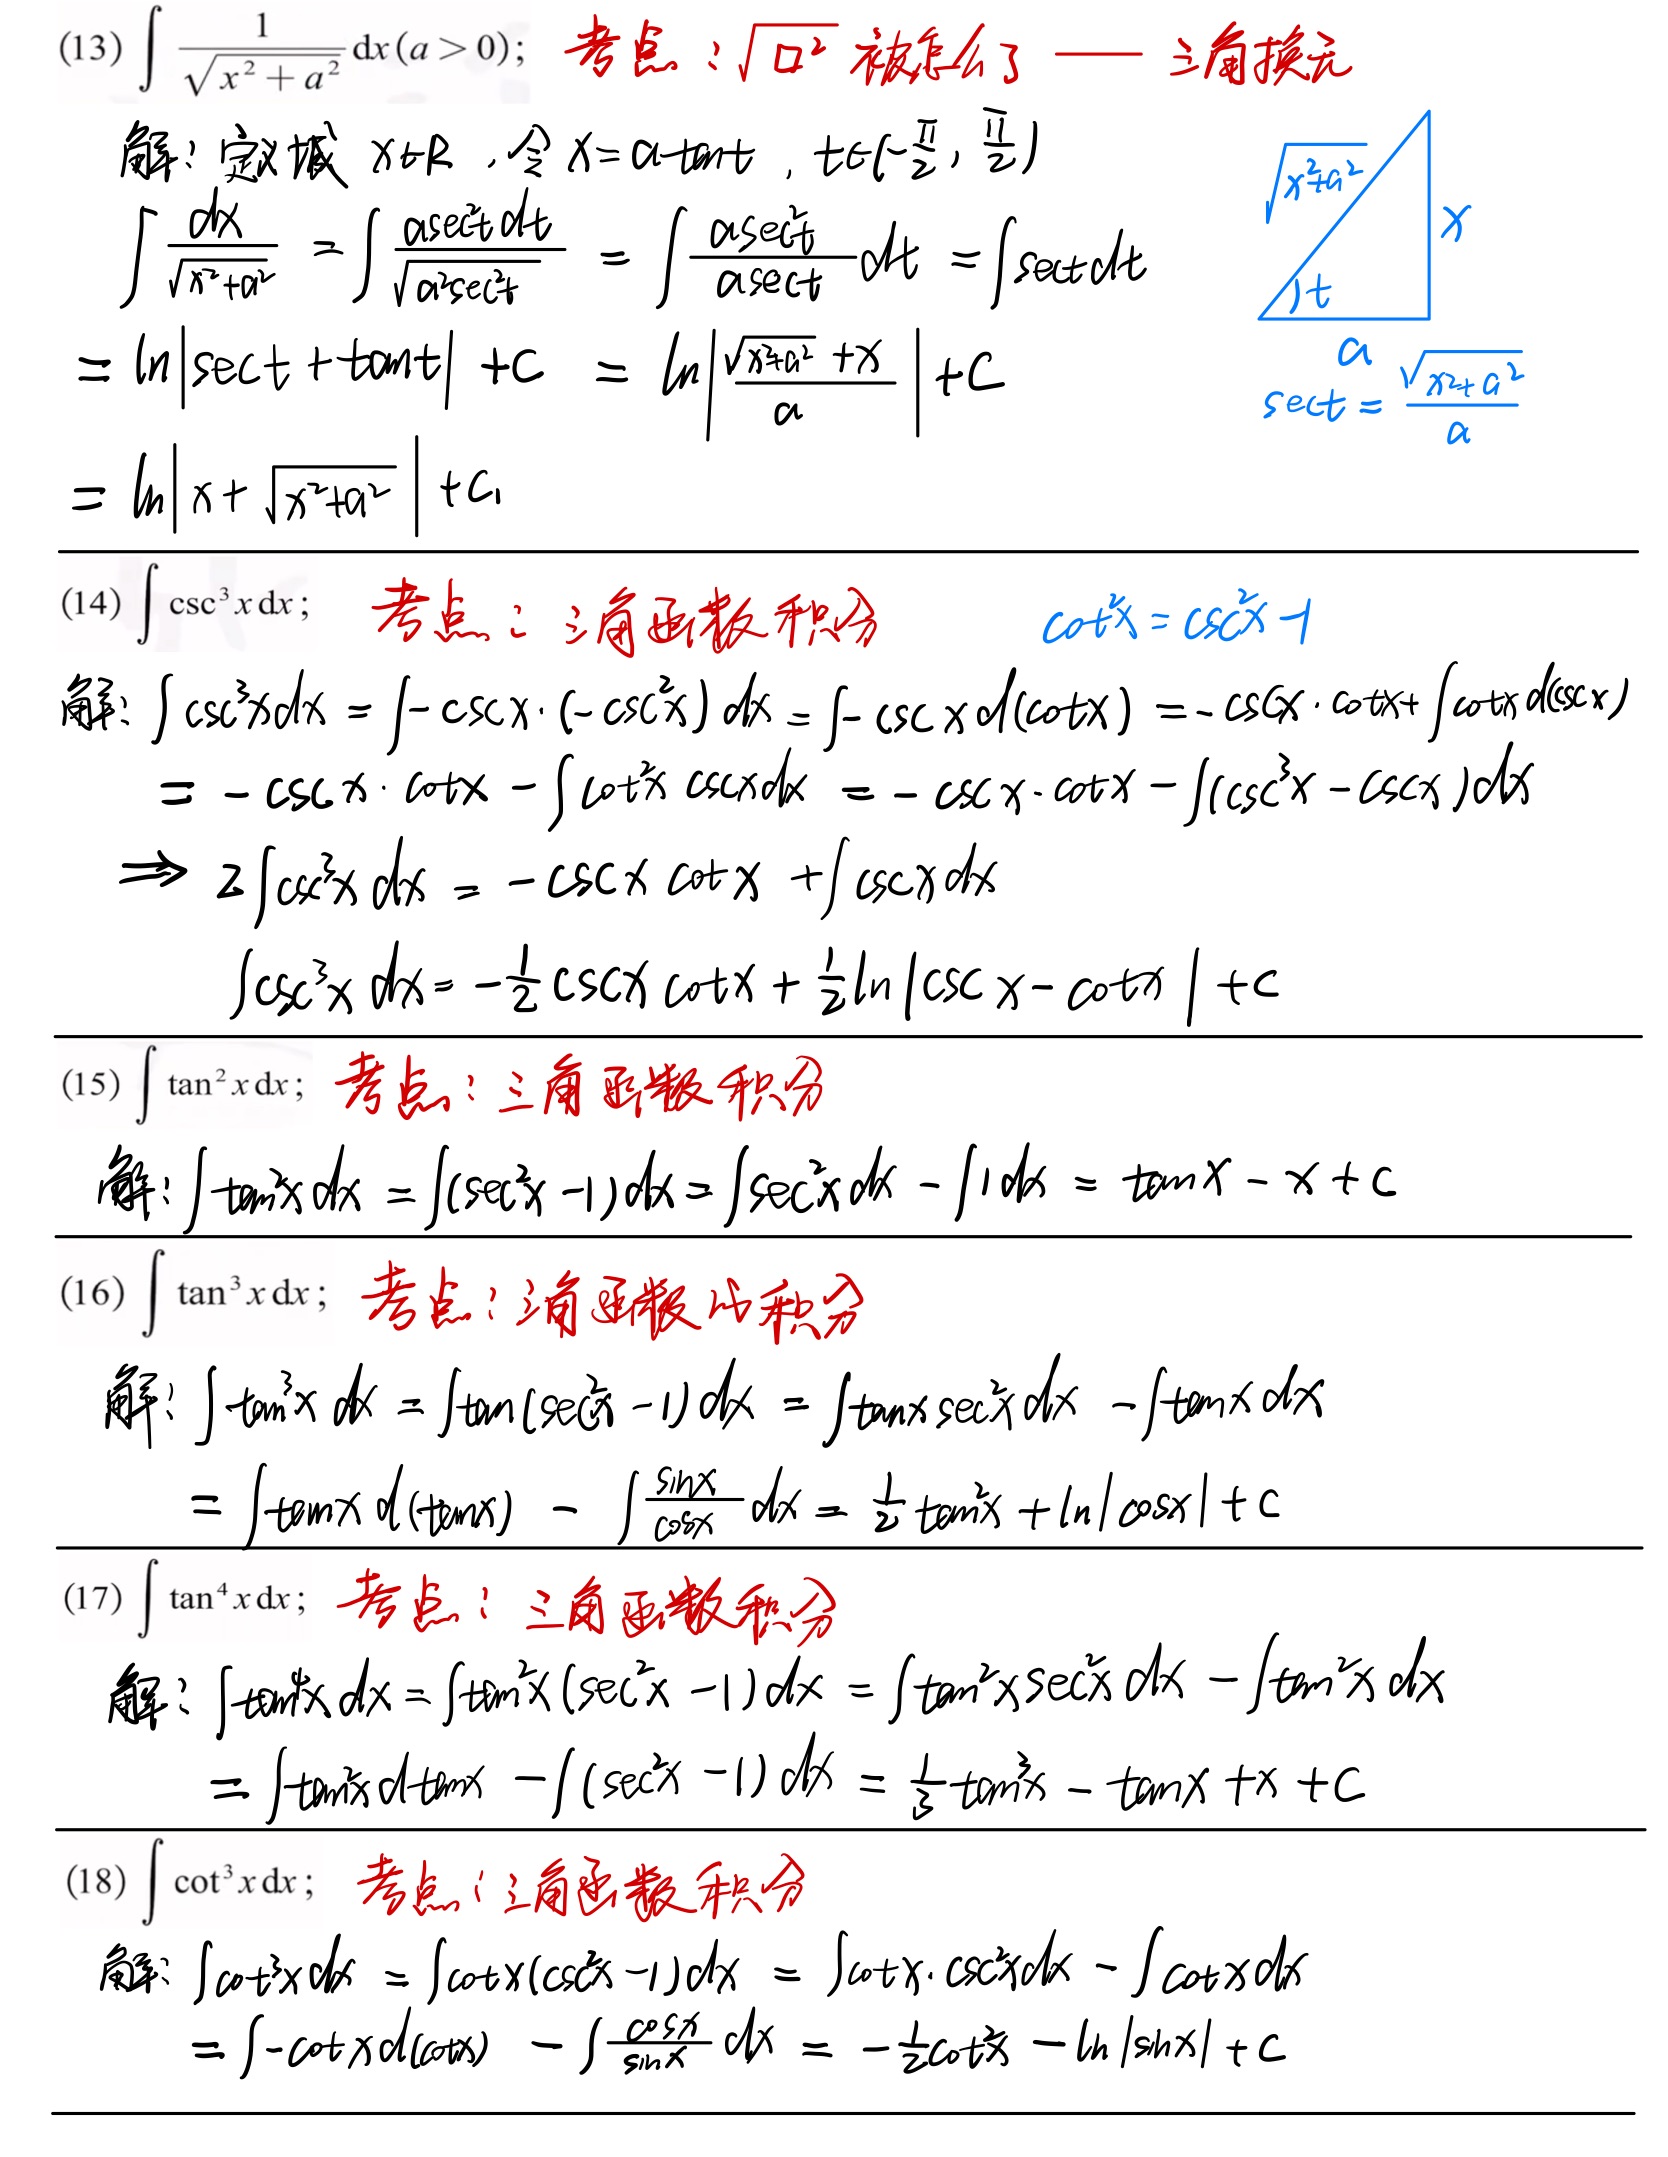 (13) ∫ 1/√(x²+a²) dx (a>0); 考点：√□² 被怎么了 —— 三角换元
解：定义域 x∈R，令 x=atant，t∈(-π/2, π/2)
∫ dx/√(x²+a²) = ∫ asec²t dt/√(a²sec²t) = ∫ asec²t/asect dt = ∫sect dt
= ln|sect+tant| +C = ln|(√(x²+a²)+x)/a| +C
= ln|x+√(x²+a²)| +C₁
√(x²+a²)
x
t
a
sect = √(x²+a²)/a
(14) ∫ csc³x dx; 考点：三角函数积分 cot²x = csc²x-1
解：∫csc³xdx = ∫-cscx·(-csc²x)dx = ∫-cscxd(cotx) = -cscx·cotx+∫cotxd(cscx)
= -cscx·cotx - ∫cot²x cscxdx = -cscx·cotx - ∫(csc³x-cscx)dx
⇒ 2∫csc³x dx = -cscx cotx + ∫cscx dx
∫csc³x dx = -1/2 cscx cotx + 1/2 ln|cscx-cotx| +C
(15) ∫ tan²x dx; 考点：三角函数积分
解：∫tan²x dx = ∫(sec²x-1)dx = ∫sec²x dx - ∫1dx = tanx - x + C
(16) ∫ tan³x dx; 考点：三角函数的积分
解：∫tan³x dx = ∫tan(sec²x-1)dx = ∫tanx sec²x dx - ∫tanx dx
= ∫tanx d(tanx) - ∫ sinx/cosx dx = 1/2 tan²x + ln|cosx| + C
(17) ∫ tan⁴x dx; 考点：三角函数积分
解：∫tan⁴x dx = ∫tan²x(sec²x-1)dx = ∫tan²x sec²x dx - ∫tan²x dx
= ∫tan²x dtanx - ∫(sec²x-1)dx = 1/3 tan³x - tanx + x + C
(18) ∫ cot³x dx; 考点：三角函数积分
解：∫cot³x dx = ∫cotx(csc²x-1)dx = ∫cotx·csc²xdx - ∫cotxdx
= ∫-cotxd(cotx) - ∫ cosx/sinx dx = -1/2 cot²x - ln|sinx| + C